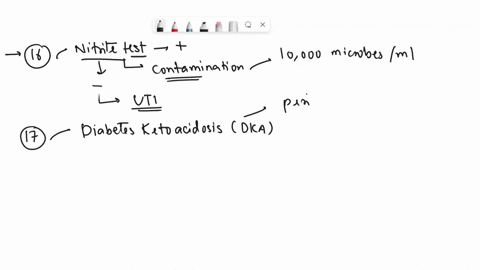 → 16 Nitrite test → +
Contamination 10,000 microbes/ml
-
UTI
17 Diabetes Ketoacidosis (DKA) pin